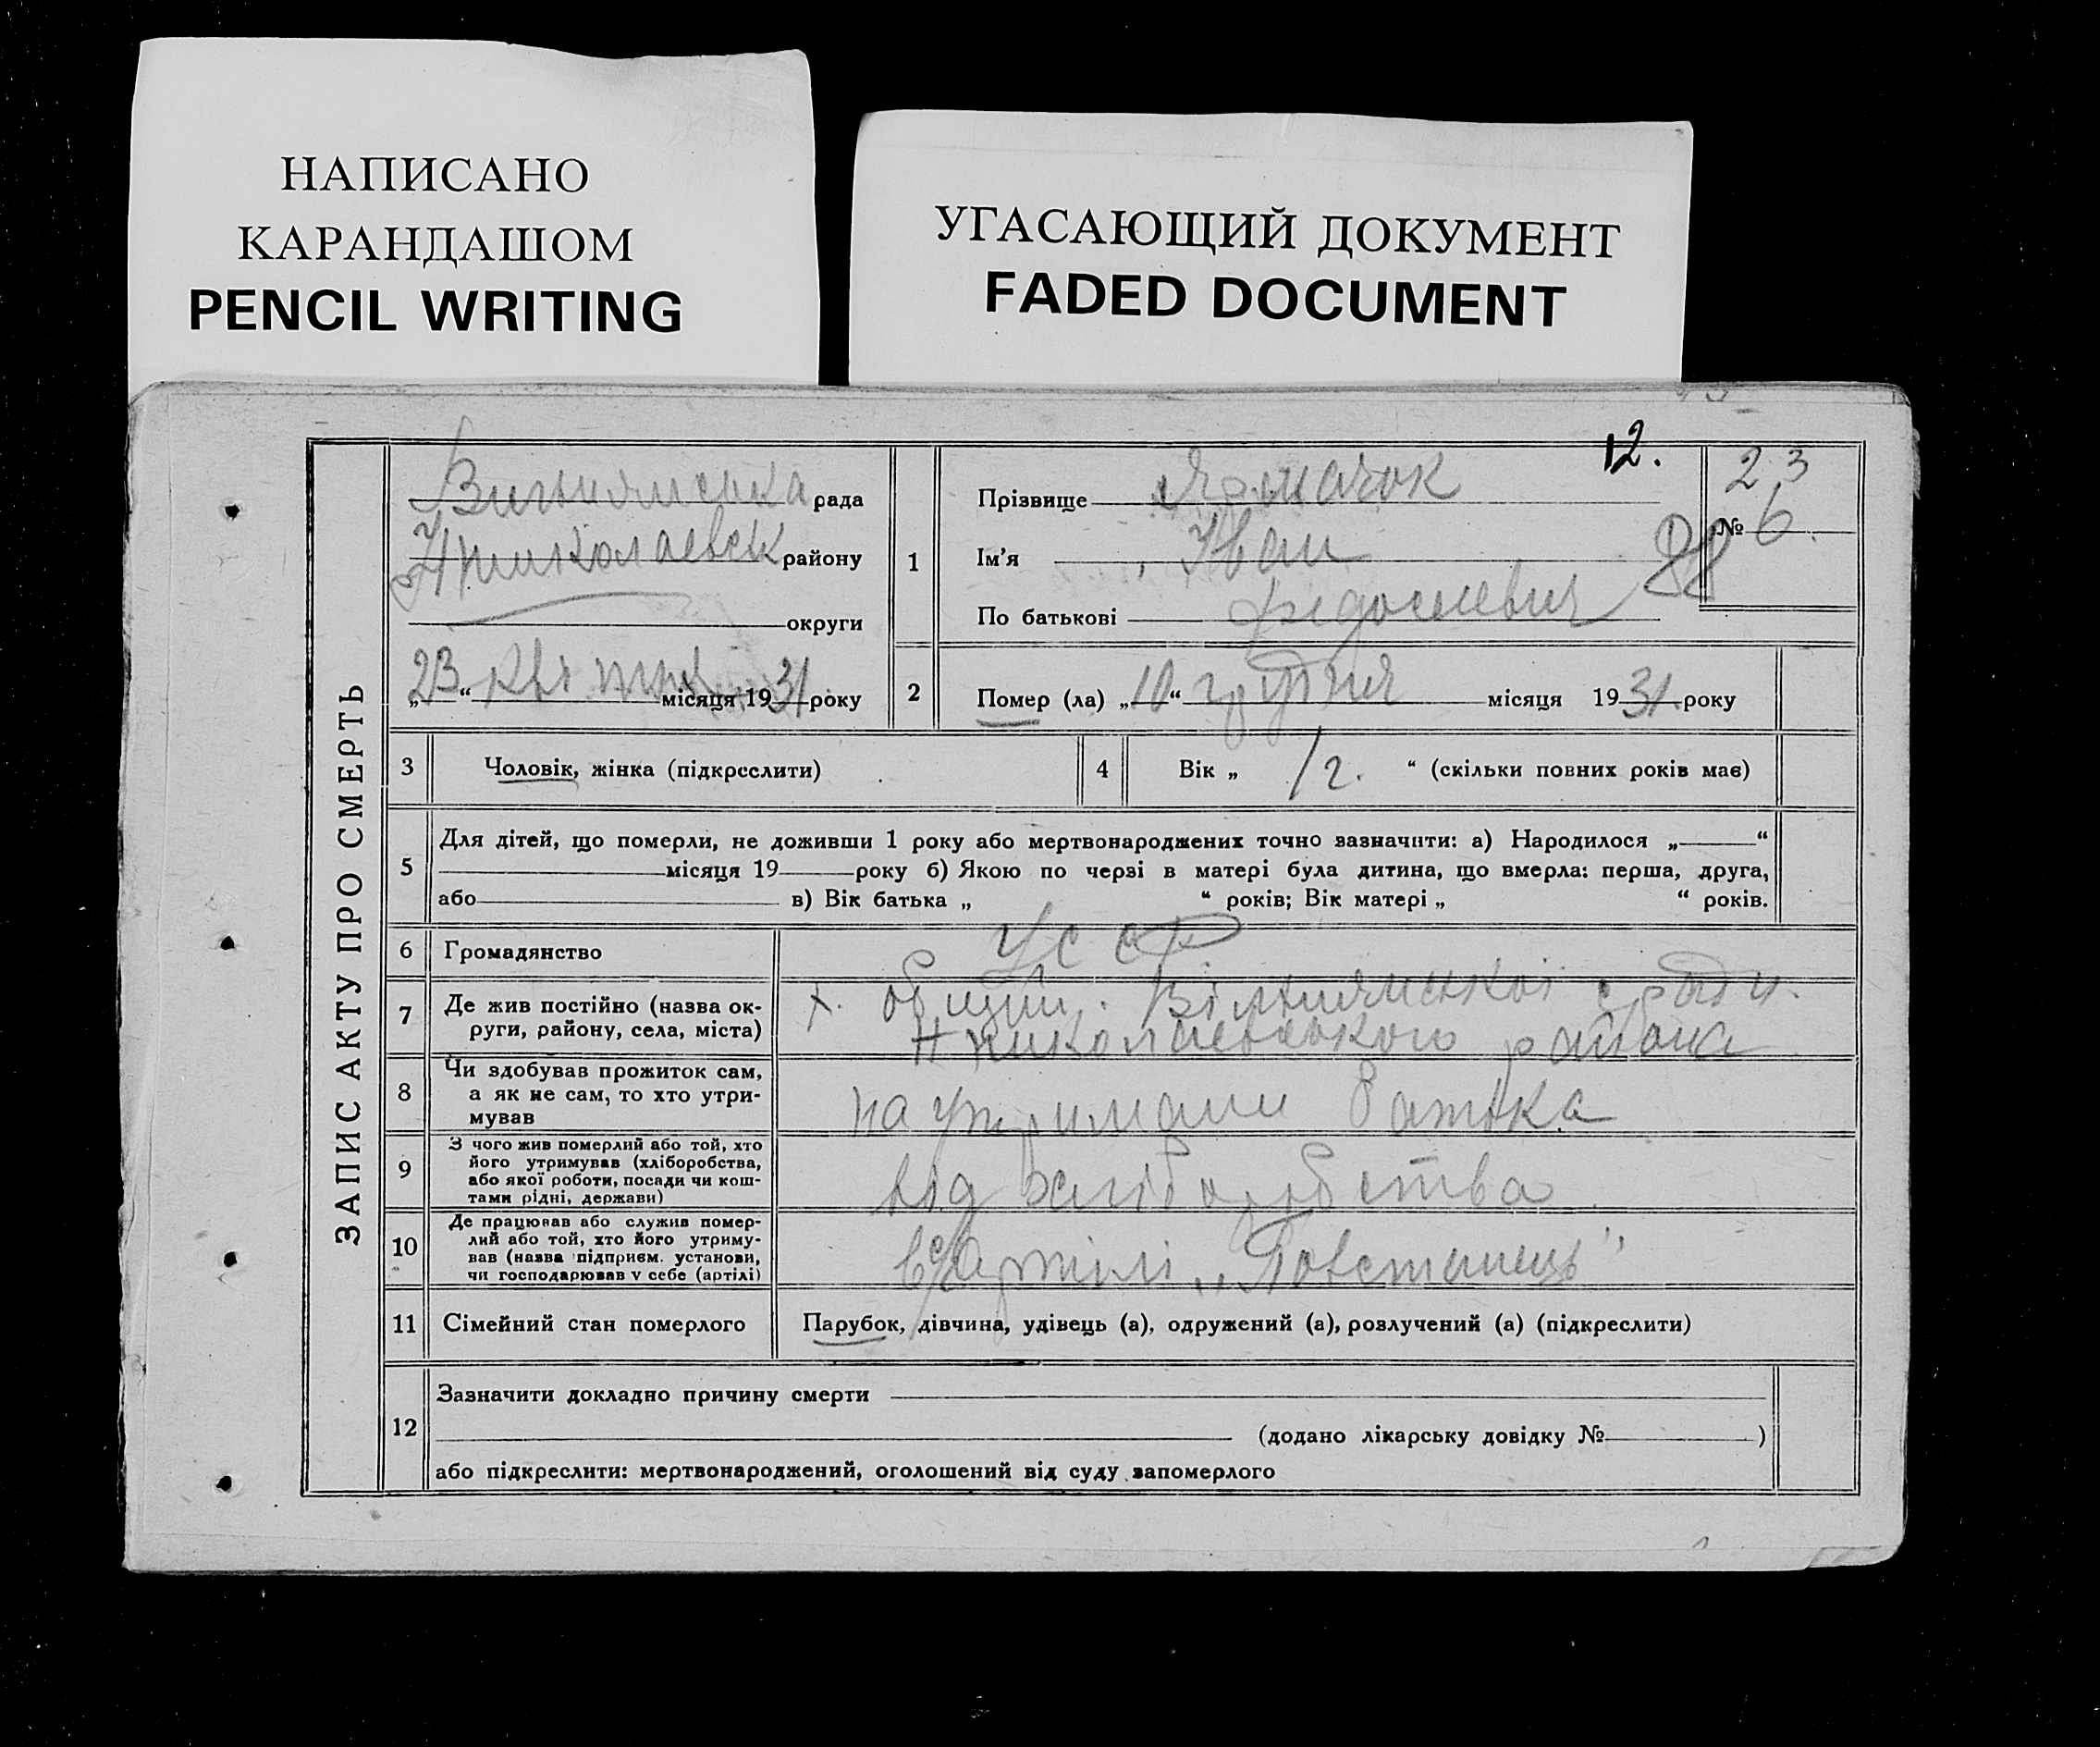 НАПИСАНО
КАРАНДАШОМ
PENCIL WRITING
УГАСАЮЩИЙ ДОКУМЕНТ
FADED DOCUMENT
ЗАПИС АКТУ ПРО СМЕРТЬ
рада
району
округи
„23“ місяця 1931 року
12.
23
№ 6
88
1
Прізвище
Ім'я Иван
По батькові
2 Помер (ла) „10“ грудня місяця 1931. року
3 Чоловік, жінка (підкреслити)
4 Вік „ 1 г. “ (скільки повних років має)
5 Для дітей, що померли, не доживши 1 року або мертвонароджених точно зазначити: а) Народилося „ “
місяця 19 року б) Якою по черзі в матері була дитина, що вмерла: перша, друга,
або в) Вік батька „ “ років; Вік матері „ “ років.
6 Громадянство УССР
7 Де жив постійно (назва ок-
руги, району, села, міста)
х. ради.
района
8 Чи здобував прожиток сам,
а як не сам, то хто утри-
мував
на батька
9 З чого жив померлий або той, хто
його утримував (хліборобства,
або якої роботи, посади чи кош-
тами рідні, держави)
від хліборобства
10 Де працював або служив помер-
лий або той, хто його утриму-
вав (назва підприєм. установи,
чи господарював у себе (артілі)
артілі „Повстанець"
11 Сімейний стан померлого
Парубок, дівчина, удівець (а), одружений (а), розлучений (а) (підкреслити)
12 Зазначити докладно причину смерти
(додано лікарську довідку № )
або підкреслити: мертвонароджений, оголошений від суду запомерлого